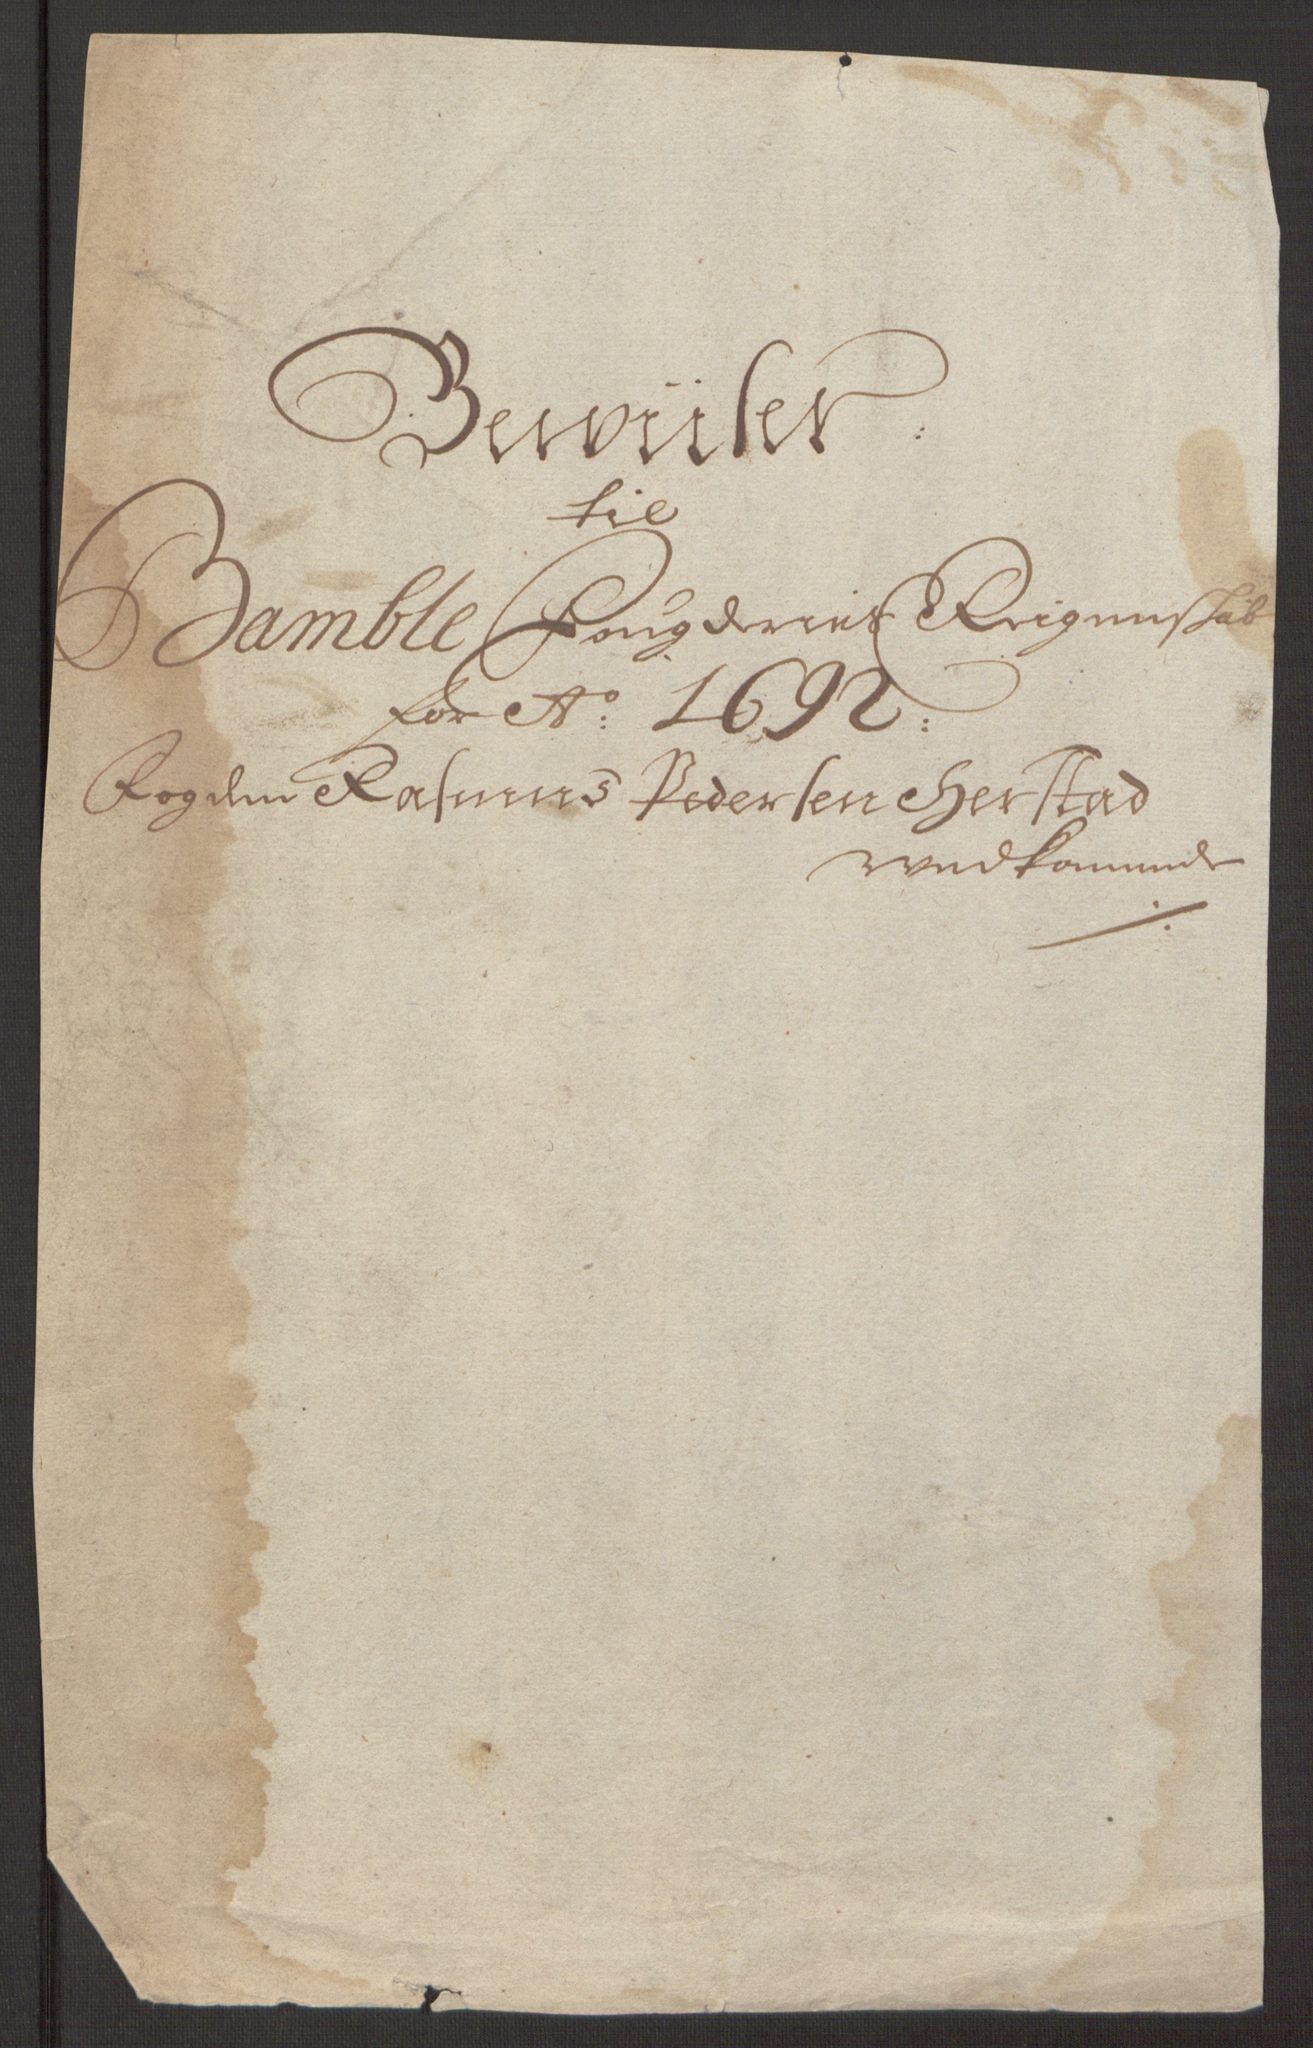 Bewiiser:
til
Bamble Fougderies Reignnskab
for Ao: 1692:
Fogden Rasmus Pedersen Herstad
wedkommende